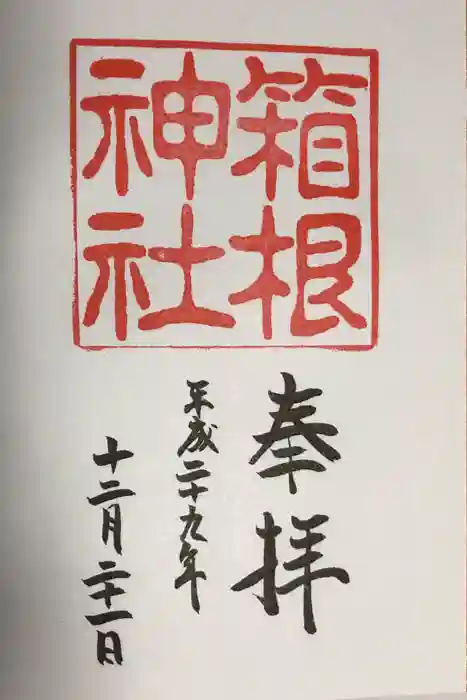 箱根
神社
奉拝
平成二十九年
十二月二十一日